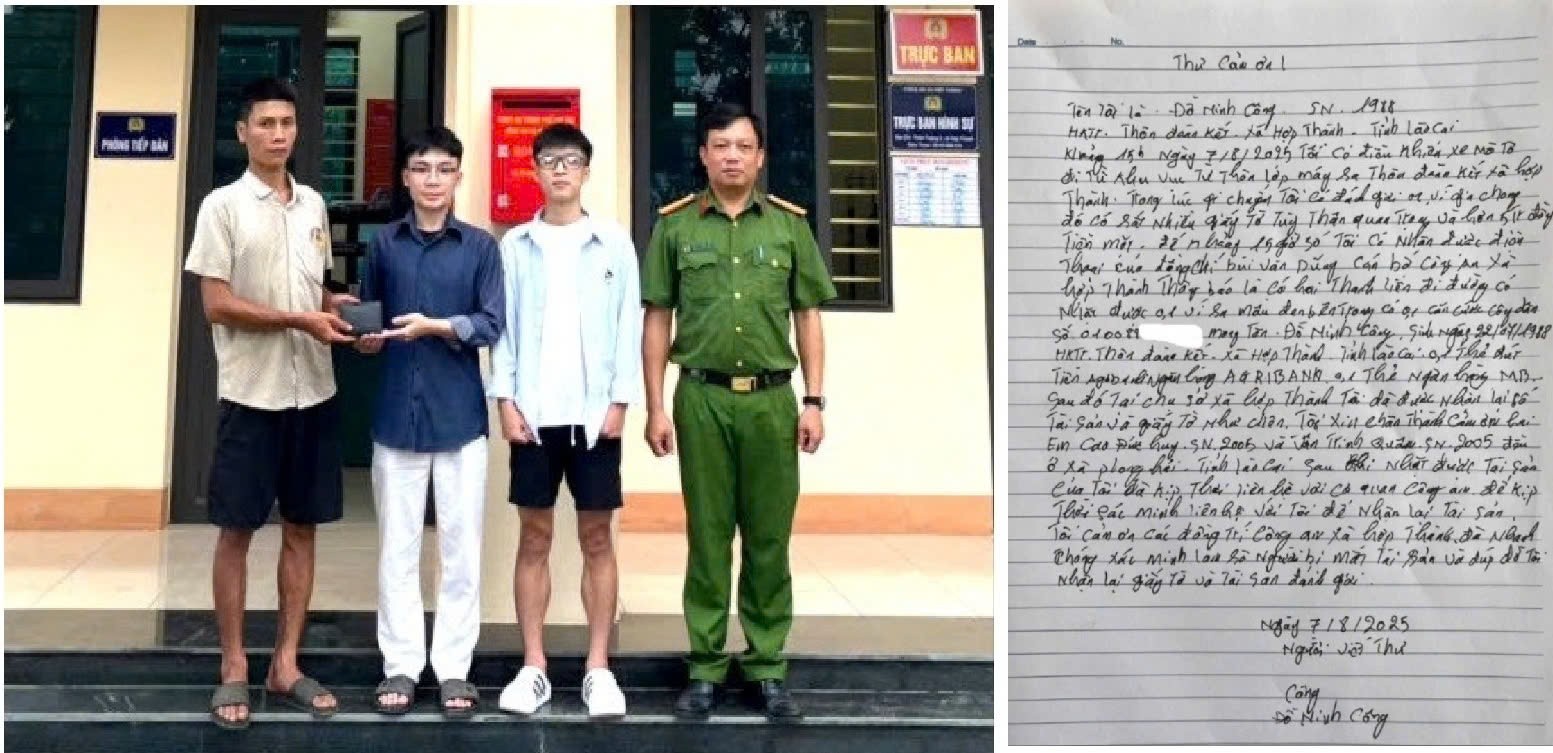 PHÒNG TIẾP DÂN
TRỰC BAN
TRỰC BAN HÌNH SỰ
Date No.
Thư Cảm ơn!
Tên Tôi là. Đỗ Minh Công. SN. 1988
HKTT. Thôn đoàn Kết. Xã Hợp Thành. Tỉnh Lào Cai
Khoảng 15h Ngày 7/8/2025 Tôi Có điều Khiển xe Mô Tô
đi Từ Khu vực Tử Thôn lắp máy ra Thôn đoàn Kết xã hợp
Thành. Trong lúc di chuyển Tôi Có đánh rơi 01 ví da trong
đó Có rất Nhiều giấy Tờ Tùy Thân quan Trọng và
Tiền mặt. đến Khoảng 15 giờ Tôi Có Nhận được điện
Thoại của đồng Chí bùi Văn Dũng Cán bộ Công An Xã
hợp Thành Thông báo là Có hai Thanh Niên đi đường có
Nhặt được 01 ví da màu đen bên Trong có 01 căn cước công dân
Số 01008 mang Tên. Đỗ Minh Công, Sinh Ngày 22/07/1988
HKTT. Thôn đoàn Kết. Xã Hợp Thành. Tỉnh Lào Cai. 01 Thẻ
Tiền Ngân hàng AGRIBANK 01 Thẻ Ngân hàng MB.
Sau đó Tại trụ Sở xã hợp Thành Tôi đã được Nhận lại số
Tài Sản và giấy Tờ Như Trên. Tôi Xin chân Thành Cảm ơn hai
Em Cao Đức huy. SN. 2005 và Văn Trinh Quân. SN. 2005 đều
ở xã phong hải. Tỉnh Lào Cai Sau Khi Nhặt được Tài Sản
Của Tôi đã Kịp Thời liên hệ với Cơ quan Công an để Kịp
Thời Xác Minh liên hệ với Tôi để Nhận lại Tài Sản.
Tôi Cảm ơn Các đồng Trí Công an xã hợp Thành đã Nhanh
Chóng xác minh Người bị Mất Tài Sản và giúp đỡ Tôi
Nhận lại giấy Tờ và Tài Sản đánh rơi.
Ngày 7/8/2025
Người Viết Thư
Công
Đỗ Minh Công